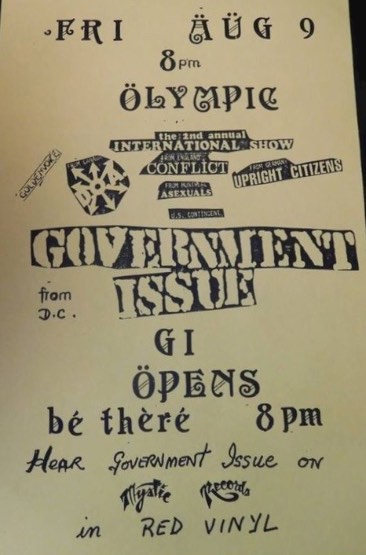 FRI ÄÜG 9
8pm
ÖLYMPIC
the 2nd annual
INTERNATIONAL SHOW
FROM ENGLAND
CONFLICT
D.O.A.
FROM GERMANY
UPRIGHT CITIZENS
FROM MONTREAL
ASEXUALS
U.S. CONTINGENT,
GOVERNMENT
ISSUE
from
D.C.
GI
ÖPENS
bé thèré 8pm
HEAR GOVERNMENT ISSUE ON
Mystic Records
in RED VINYL